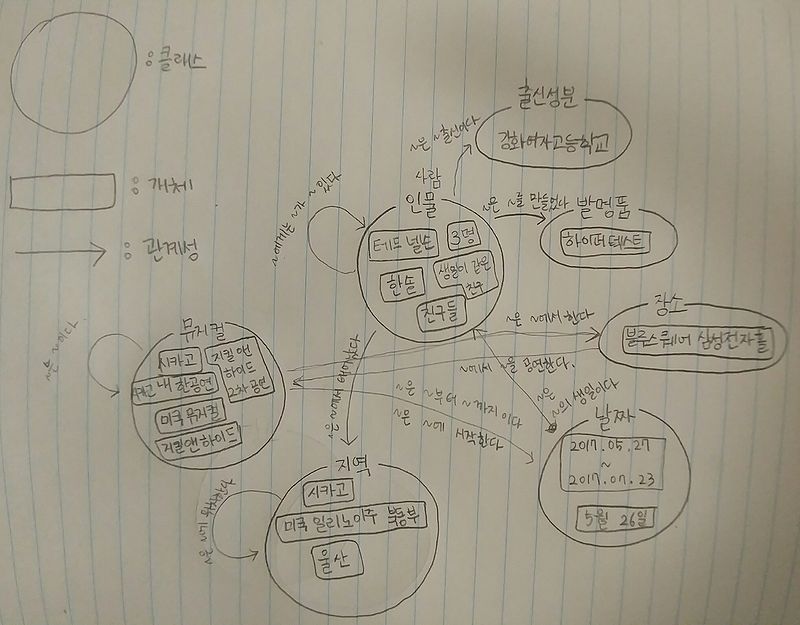 : 클래스
: 개체
: 관계성
출신성분
강화여자고등학교
~은 ~출신이다
사람
인물
테드 넬슨
3명
한솔
생일이 같은
친구
친구들
~에게는 ~가 ~ 있다
~은 ~를 만들었다
발명품
하이퍼텍스트
장소
블루스퀘어 삼성전자홀
~은 ~에서 한다
~에서 ~을 공연한다.
뮤지컬
시카고
지킬앤
하이드
2차 공연
내한공연
미국 뮤지컬
지킬앤하이드
~은 ~이다.
~은 ~에서 태어났다
~은 ~부터 ~까지 이다
~은 ~에 시작한다
~은
~의 생일이다
날짜
2017.05.27
~
2017.07.23
5월 26일
지역
시카고
미국 일리노이주 북동부
울산
~은 ~에 위치한다